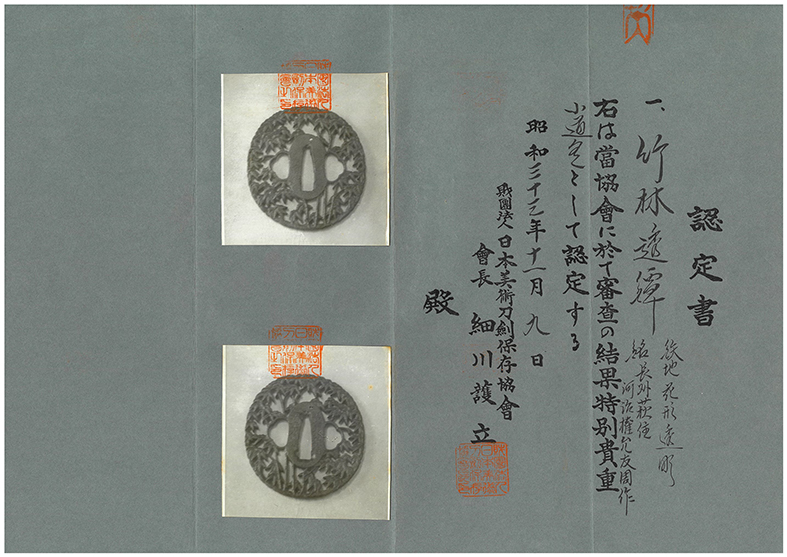 認定書
一、竹林透鐔
鉄地 花形 透彫
銘 長州萩住
河治権允友周作
右は當協會に於て審査の結果特別貴重
小道具として認定する
昭和三十三年十一月九日
財團法人 日本美術刀劍保存協會
會長 細川護立
殿